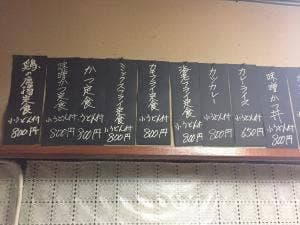 味噌かつ丼
小うどん付
800円
カレーライス
小うどん付
650円
カツカレー
小うどん付
800円
海老フライ定食
小うどん付
800円
カキフライ定食
小うどん付
800円
ミックスフライ定食
小うどん付
800円
かつ定食
小うどん付
800円
味噌かつ定食
小うどん付
800円
鶏の唐揚定食
小うどん付
800円